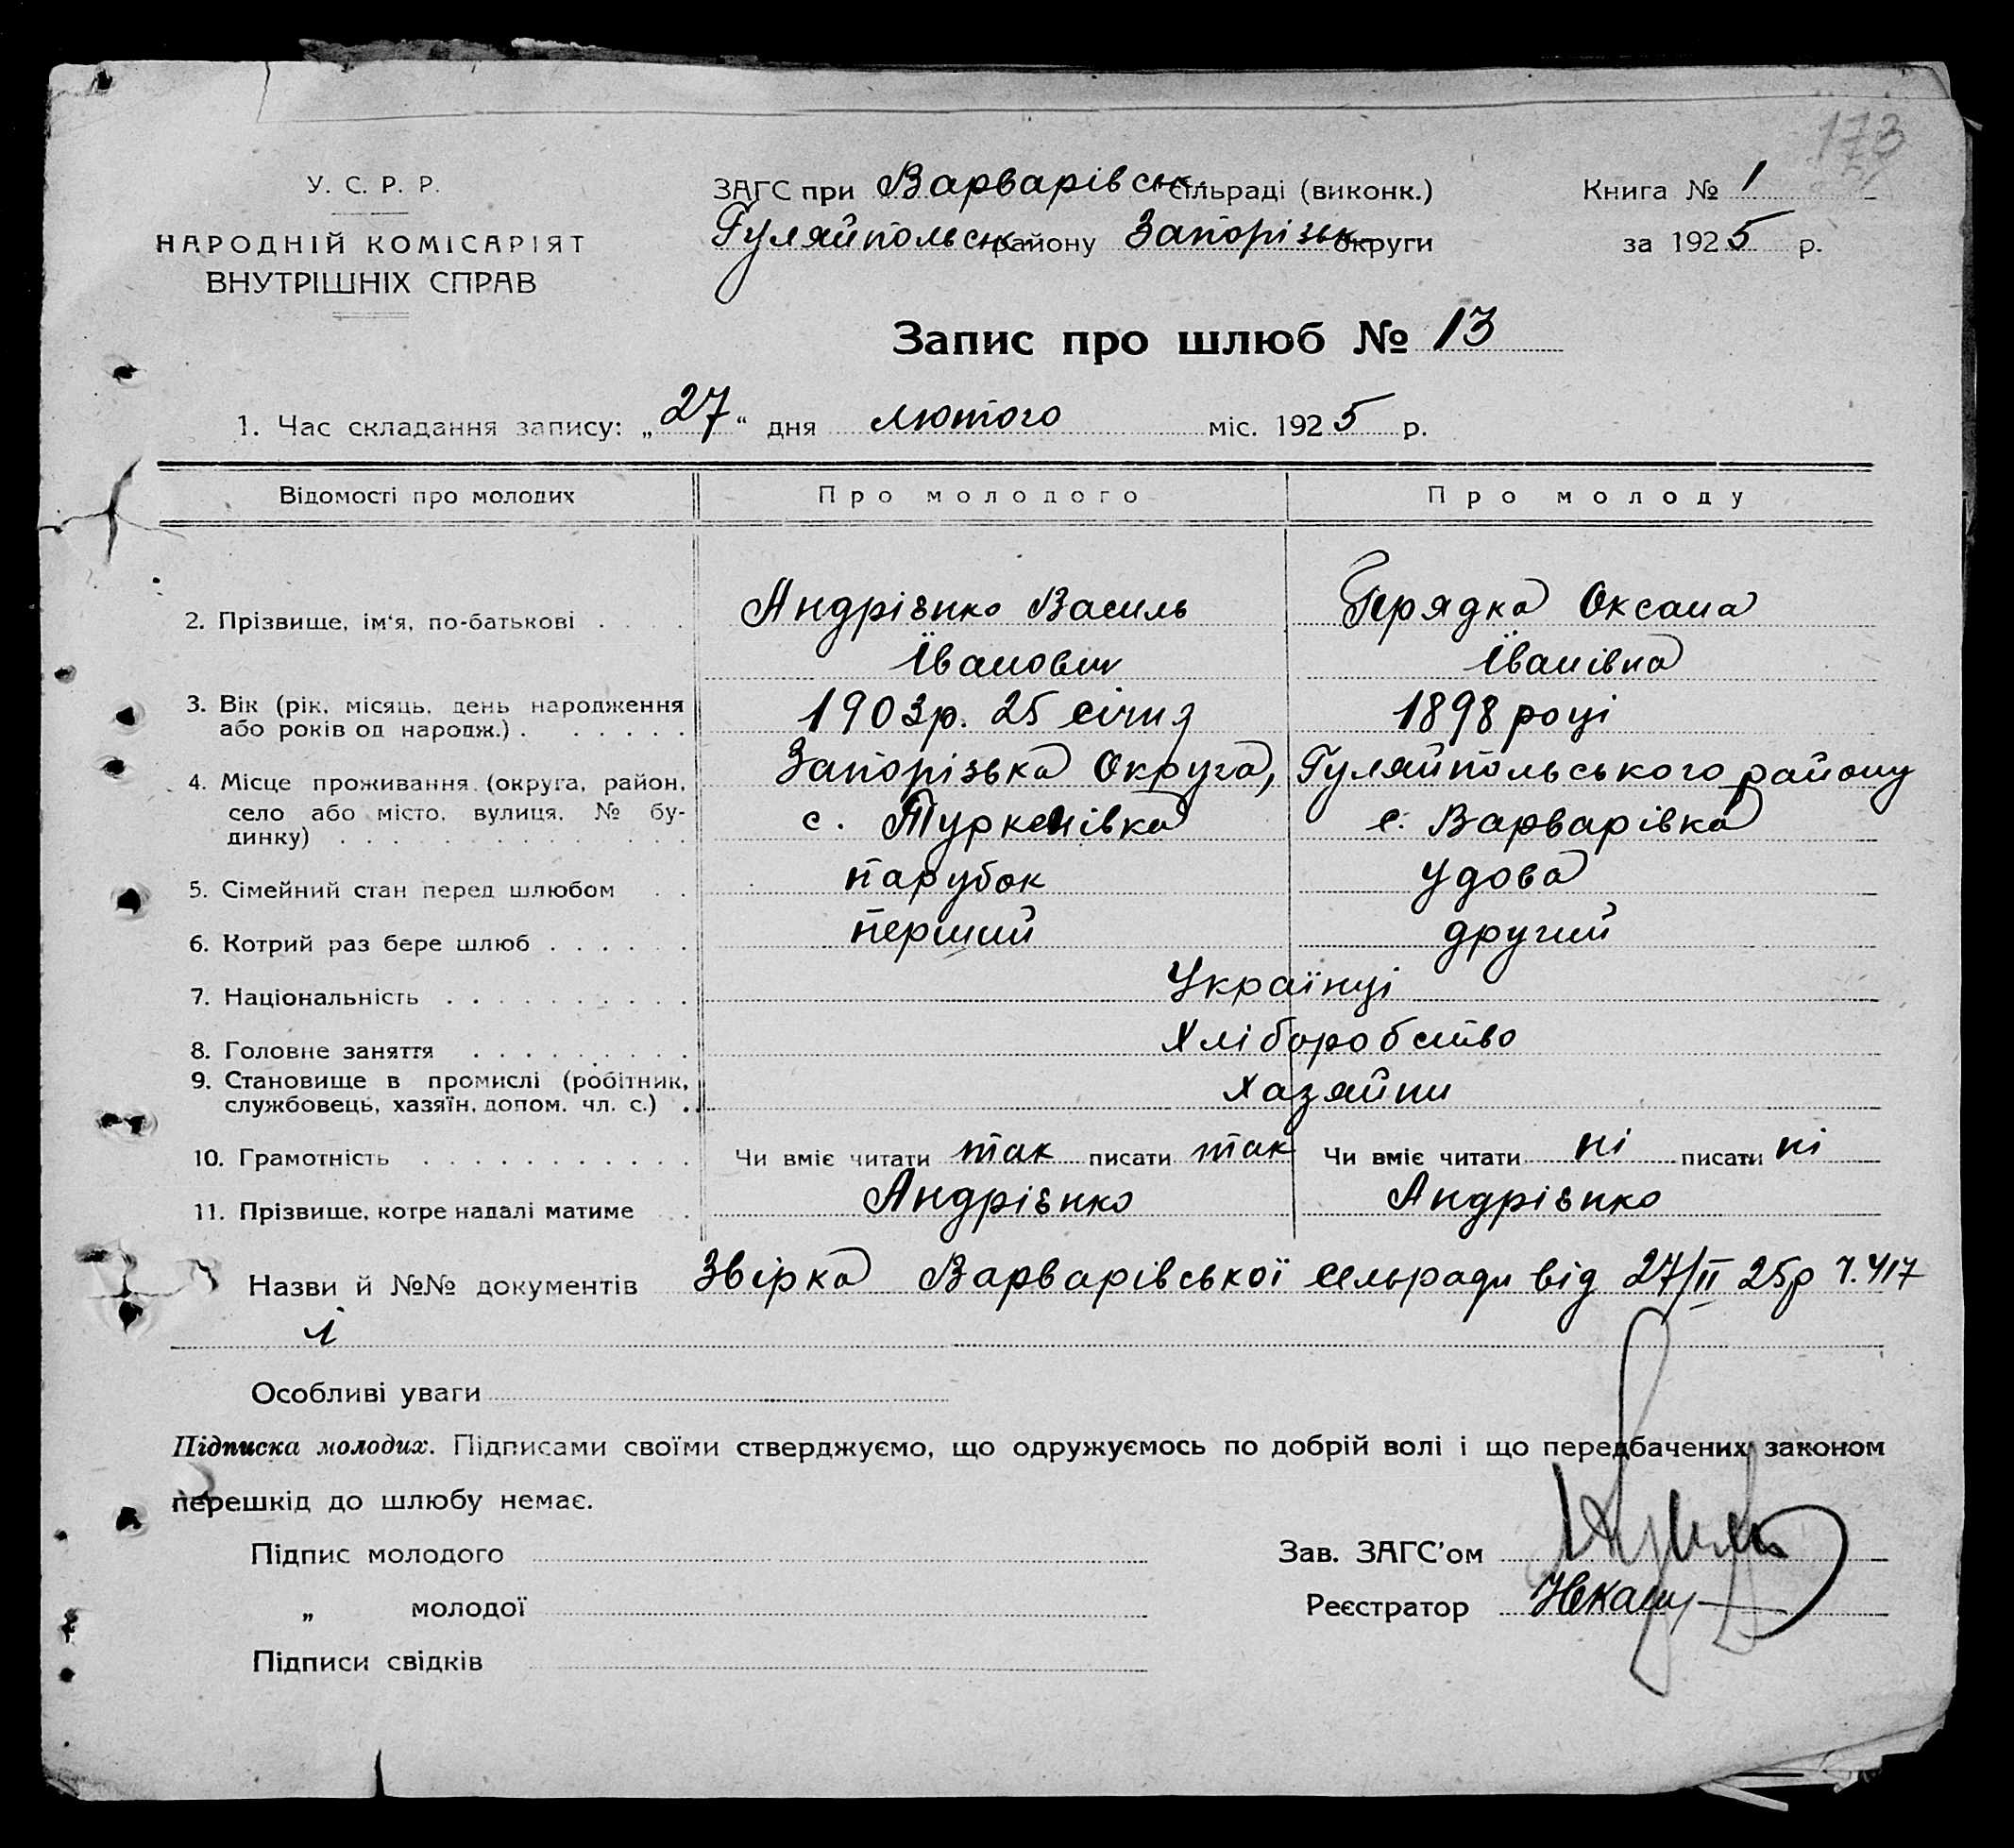 173
У. С. Р. Р.
НАРОДНІЙ КОМІСАРІЯТ
ВНУТРІШНІХ СПРАВ
ЗАГС при Варварівськ. сільраді (виконк.)
Гуляйпольськ. району Запорізьк. округи
Книга № 1
за 1925 р.
Запис про шлюб № 13
1. Час складання запису: „27“ дня лютого міс. 1925 р.
Відомості про молодих Про молодого Про молоду
2. Прізвище, ім‘я, по-батькові . . . . Андрієнко Василь Іванович
Гірядка Оксана Іванівна
3. Вік (рік, місяць, день народження або років од народж.) . . . . . . 1903р. 25 січня 1898 році
4. Місце проживання (округа, район, село або місто, вулиця, № будинку) Запорізька Округа, Гуляйпольського району
с. Туркенівка с. Варварівка
5. Сімейний стан перед шлюбом . . парубок удова
6. Котрий раз бере шлюб . . . . . . перший другий
7. Національність . . . . . . . . . . Українці
8. Головне заняття . . . . . . . . . Хліборобство
9. Становище в промислі (робітник, службовець, хазяїн, допом. чл. с.) . . хазяйни
10. Грамотність . . . . . . . . . . . Чи вміє читати так писати так Чи вміє читати ні писати ні
11. Прізвище, котре надалі матиме . . Андрієнко Андрієнко
Назви й №№ документів Звірка Варварівської сельради від 27/II 25р ч. 417
Особливі уваги
Підписка молодих. Підписами своїми стверджуємо, що одружуємось по добрій волі і що передбачених законом
перешкід до шлюбу немає.
Підпис молодого
„ молодої
Підписи свідків
Зав. ЗАГС’ом
Реєстратор